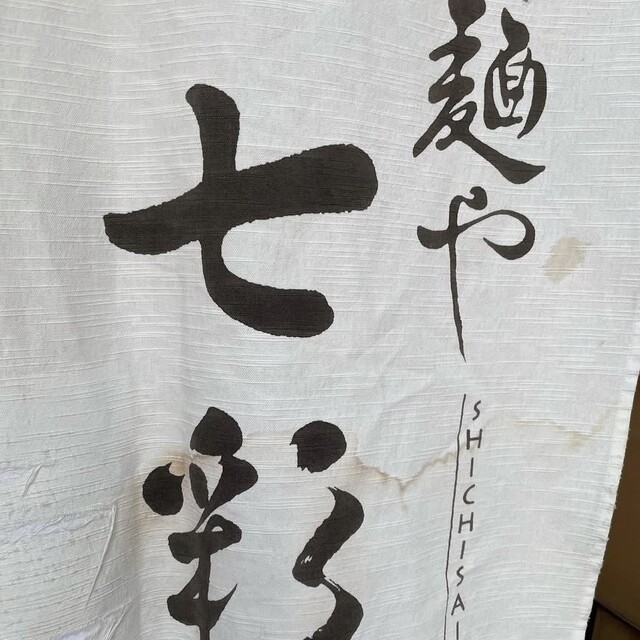 麺や
七彩
SHICHISAI